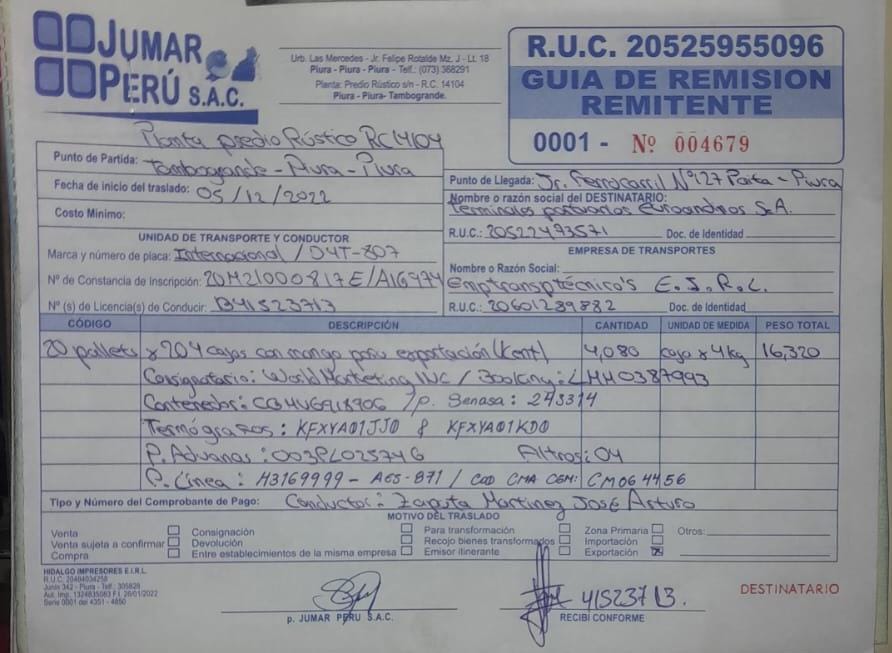 JUMAR
PERÚ S.A.C.
Urb. Las Mercedes - Jr. Felipe Rotalde Mz. J - Lt. 18
Piura - Piura - Piura - Telf.: (073) 368291
Planta: Predio Rústico s/n - R.C. 14104
Piura - Piura- Tambogrande.
R.U.C. 20525955096
GUIA DE REMISION
REMITENTE
0001 - Nº 004679
Planta predio Rústico RC14104
Punto de Partida: Tambogrande - Piura - Piura
Fecha de inicio del traslado: 05/12/2022
Costo Minimo:
Punto de Llegada: Jr. Ferrocarril Nº127 Paita - Piura
Nombre o razón social del DESTINATARIO:
Terminales portuarios Euroandinos S.A.
R.U.C.: 20522473571 Doc. de Identidad
UNIDAD DE TRANSPORTE Y CONDUCTOR
Marca y número de placa: Internacional / D4T-807
Nº de Constancia de Inscripción: 20M21000817E/A1G974
Nº (s) de Licencia(s) de Conducir: B41523713
EMPRESA DE TRANSPORTES
Nombre o Razón Social:
Emptransptécnico's E.I.R.L.
R.U.C.: 20601289882 Doc. de Identidad
CÓDIGO DESCRIPCIÓN CANTIDAD UNIDAD DE MEDIDA PESO TOTAL
20 pallets x 204 cajas con mango para exportación (Kent) 4,080 caja x 4kg 16,320
Consignatario: World Marketing INC / Booking: LMM0387993
Contenedor: CGMU6918906 / p. Senasa: 243314
Termógrafos: KFXYA01JJ0 & KFXYA01KD0
P. Aduanas: 003PL025746 Altros: 04
P. Línea: H3169999 - AGS-871 / Cod CMA CGM: CM064456
Tipo y Número del Comprobante de Pago: Conductor: Zapata Martinez José Arturo
MOTIVO DEL TRASLADO
Venta Consignación Para transformación Zona Primaria Otros:
Venta sujeta a confirmar Devolución Recojo bienes transformados Importación
Compra Entre establecimientos de la misma empresa Emisor itinerante Exportación X
HIDALGO IMPRESORES E.I.R.L.
R.U.C. 20484034258
Junín 342 - Piura - Telf.: 305828
Aut. Imp. 1324835083 F.I. 26/01/2022
Serie 0001 del 4351 - 4850
41523713.
p. JUMAR PERU S.A.C.
RECIBÍ CONFORME
DESTINATARIO